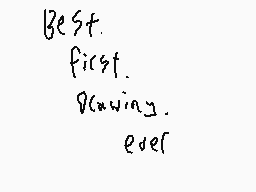 Best.
first.
Drawing.
ever